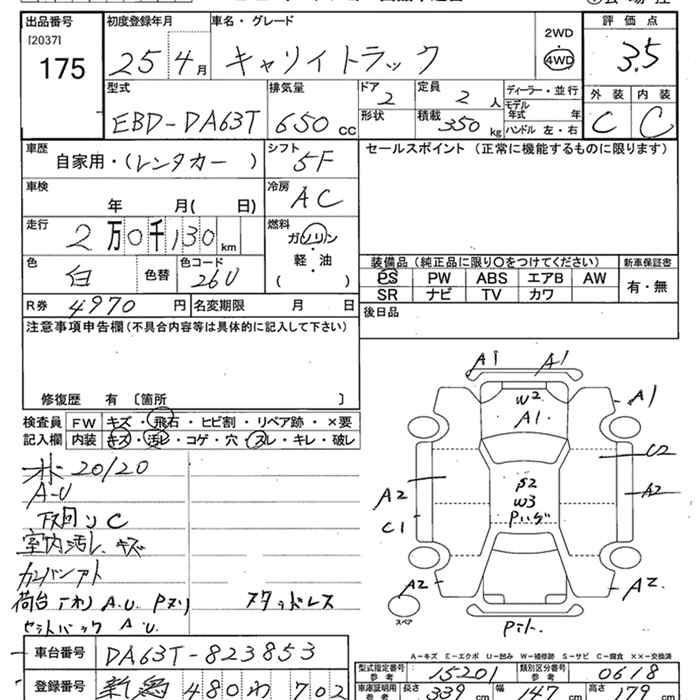 出品番号 初度登録年月 車名・グレード 評価点
[2037]
175
25年 4月 キャリイトラック 2WD 4WD 3.5
型式 排気量 ドア 定員 ディーラー・並行 外装 内装
EBD-DA63T 650cc 2 2人 モデル年式 年 C C
形状 積載 350kg ハンドル 左・右
車歴 自家用・(レンタカー) シフト 5F セールスポイント (正常に機能するものに限ります)
車検 年 月( 日) 冷房 AC
走行 2万0千130km 燃料 ガソリン 軽・油 ( )
色 白 色替 色コード 26U
装備品 (純正品に限り〇をつけてください) 新車保証書
PS PW ABS エアB AW 有・無
SR ナビ TV カワ
R券 4970円 名変期限 月 日 後日品
注意事項申告欄(不具合内容等は具体的に記入して下さい)
修復歴 有 〔箇所 〕
検査員 FW キズ・飛石・ヒビ割・リペア跡・×要
記入欄 内装 キズ・汚レ・コゲ・穴・スレ・キレ・破レ
20/20
A-U
下回りC
室内汚レ キズ
荷台 A.U. Pヌリ スタッドレス
A.U.
A1 A1
W2
A1
A1
C2
A2
A2
C1
S2
W3
A2
A2
スペア
A-キズ E-エクボ U-凹み W-補修跡 S-サビ C-腐食 ××-交換済
車台番号 DA63T-823853
型式指定番号 参考 15201 類別区分番号 参考 0618
登録番号 新潟 480 わ 702
車庫証明用 参考 長さ 339cm 幅 147cm 高さ 179cm